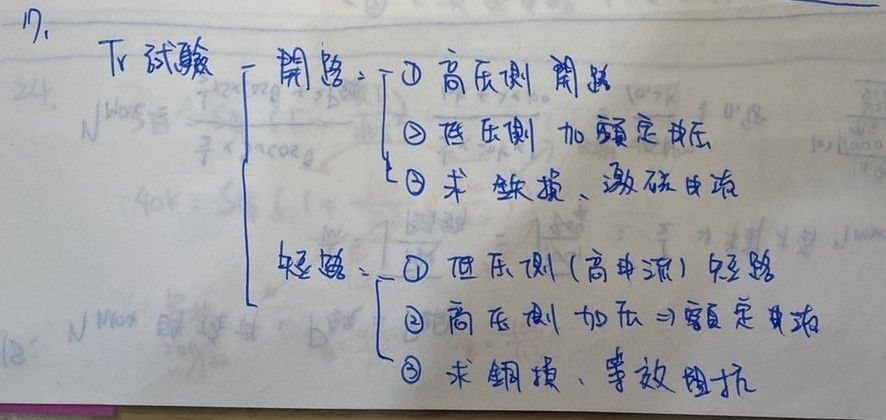 17.
Tr 試驗 開路: ① 高压側 開路
② 低压側 加額定电压
③ 求 鉄損、激磁电流
短路: ① 低压側(高电流) 短路
② 高压側 加压 ⇒ 額定电流
③ 求銅損、等效阻抗
18.
24.